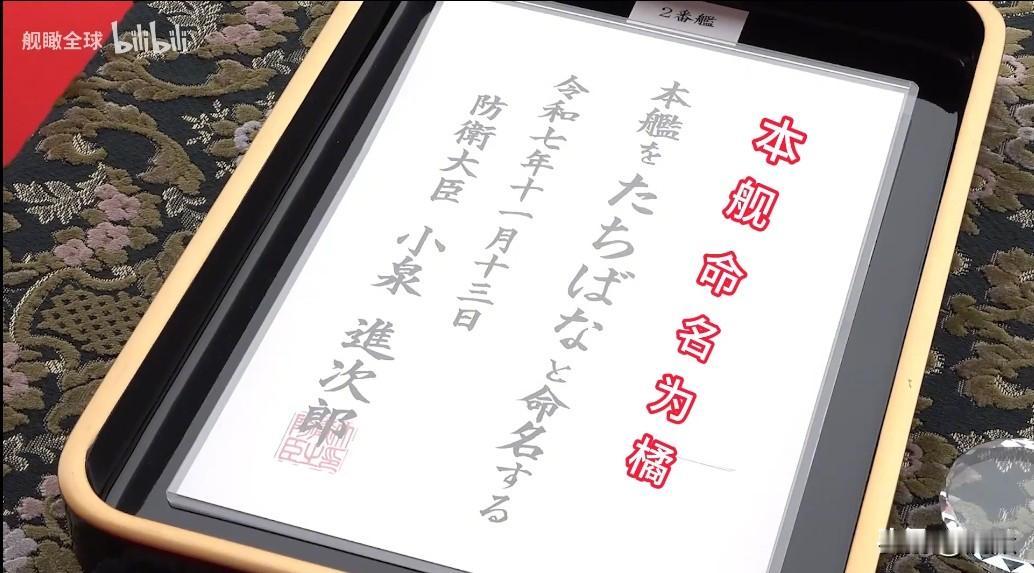 舰瞰全球 bilibili
2番艦
本舰命名为橘
本艦をたちばなと命名する
令和七年十一月十三日
防衛大臣 小泉 進次郎